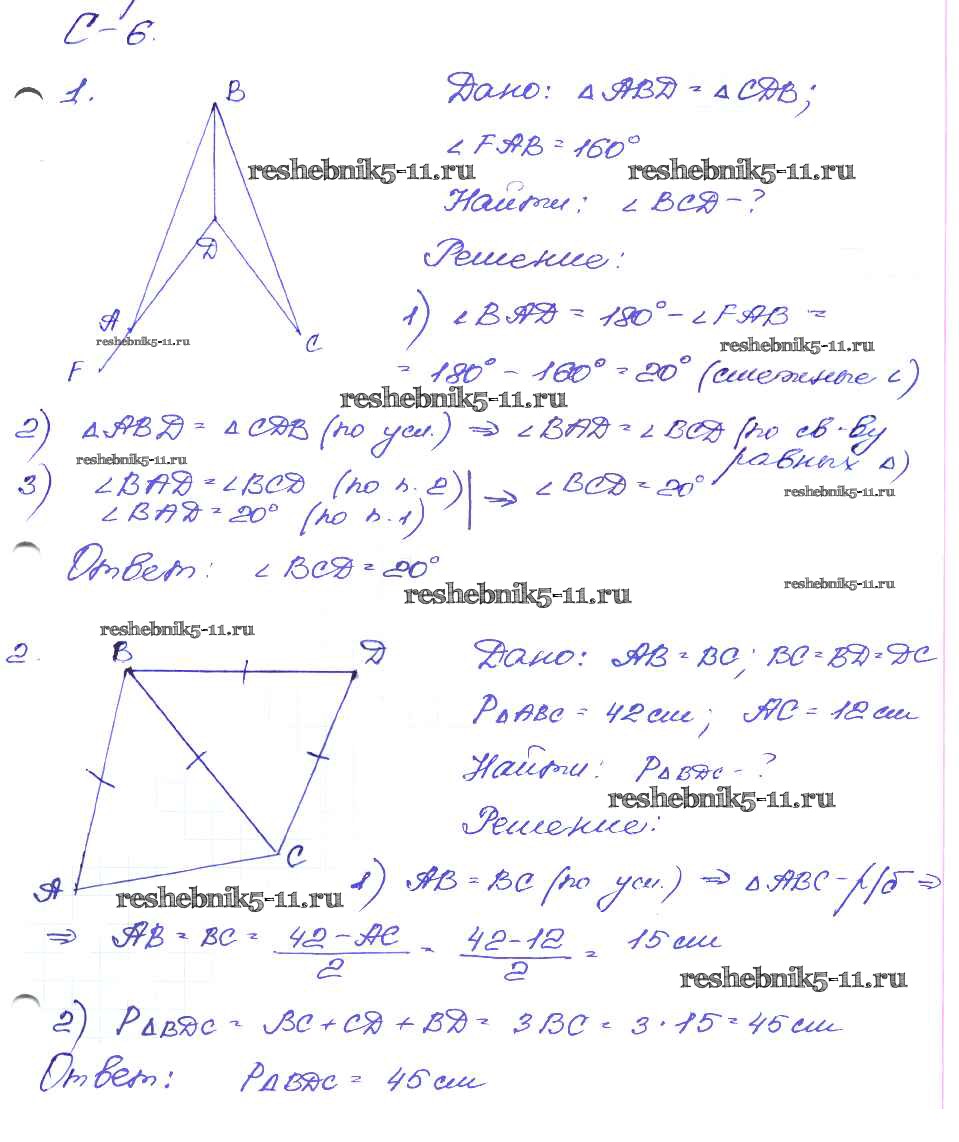 С-6.
1.
B
D
A
C
F
Дано: △ABD = △CDB;
∠FAB = 160°
reshebnik5-11.ru reshebnik5-11.ru
Найти: ∠BCD - ?
Решение:
1) ∠BAD = 180° - ∠FAB =
reshebnik5-11.ru reshebnik5-11.ru
= 180° - 160° = 20° (смежные ∠)
reshebnik5-11.ru
2) △ABD = △CDB (по усл.) ⇒ ∠BAD = ∠BCD (по св-ву
равных △)
reshebnik5-11.ru
3) ∠BAD = ∠BCD (по п. 2) | ⇒ ∠BCD = 20°
∠BAD = 20° (по п. 1)
reshebnik5-11.ru
Ответ: ∠BCD = 20°
reshebnik5-11.ru reshebnik5-11.ru
reshebnik5-11.ru
2.
B
D
C
A
Дано: AB = BC; BC = BD = DC
P△ABC = 42 см; AC = 12 см
Найти: P△BDC - ?
reshebnik5-11.ru
Решение:
1) AB = BC (по усл.) ⇒ △ABC - р/б ⇒
reshebnik5-11.ru
⇒ AB = BC = (42 - AC)/2 = (42 - 12)/2 = 15 см
reshebnik5-11.ru
2) P△BDC = BC + CD + BD = 3BC = 3 · 15 = 45 см
Ответ: P△BDC = 45 см